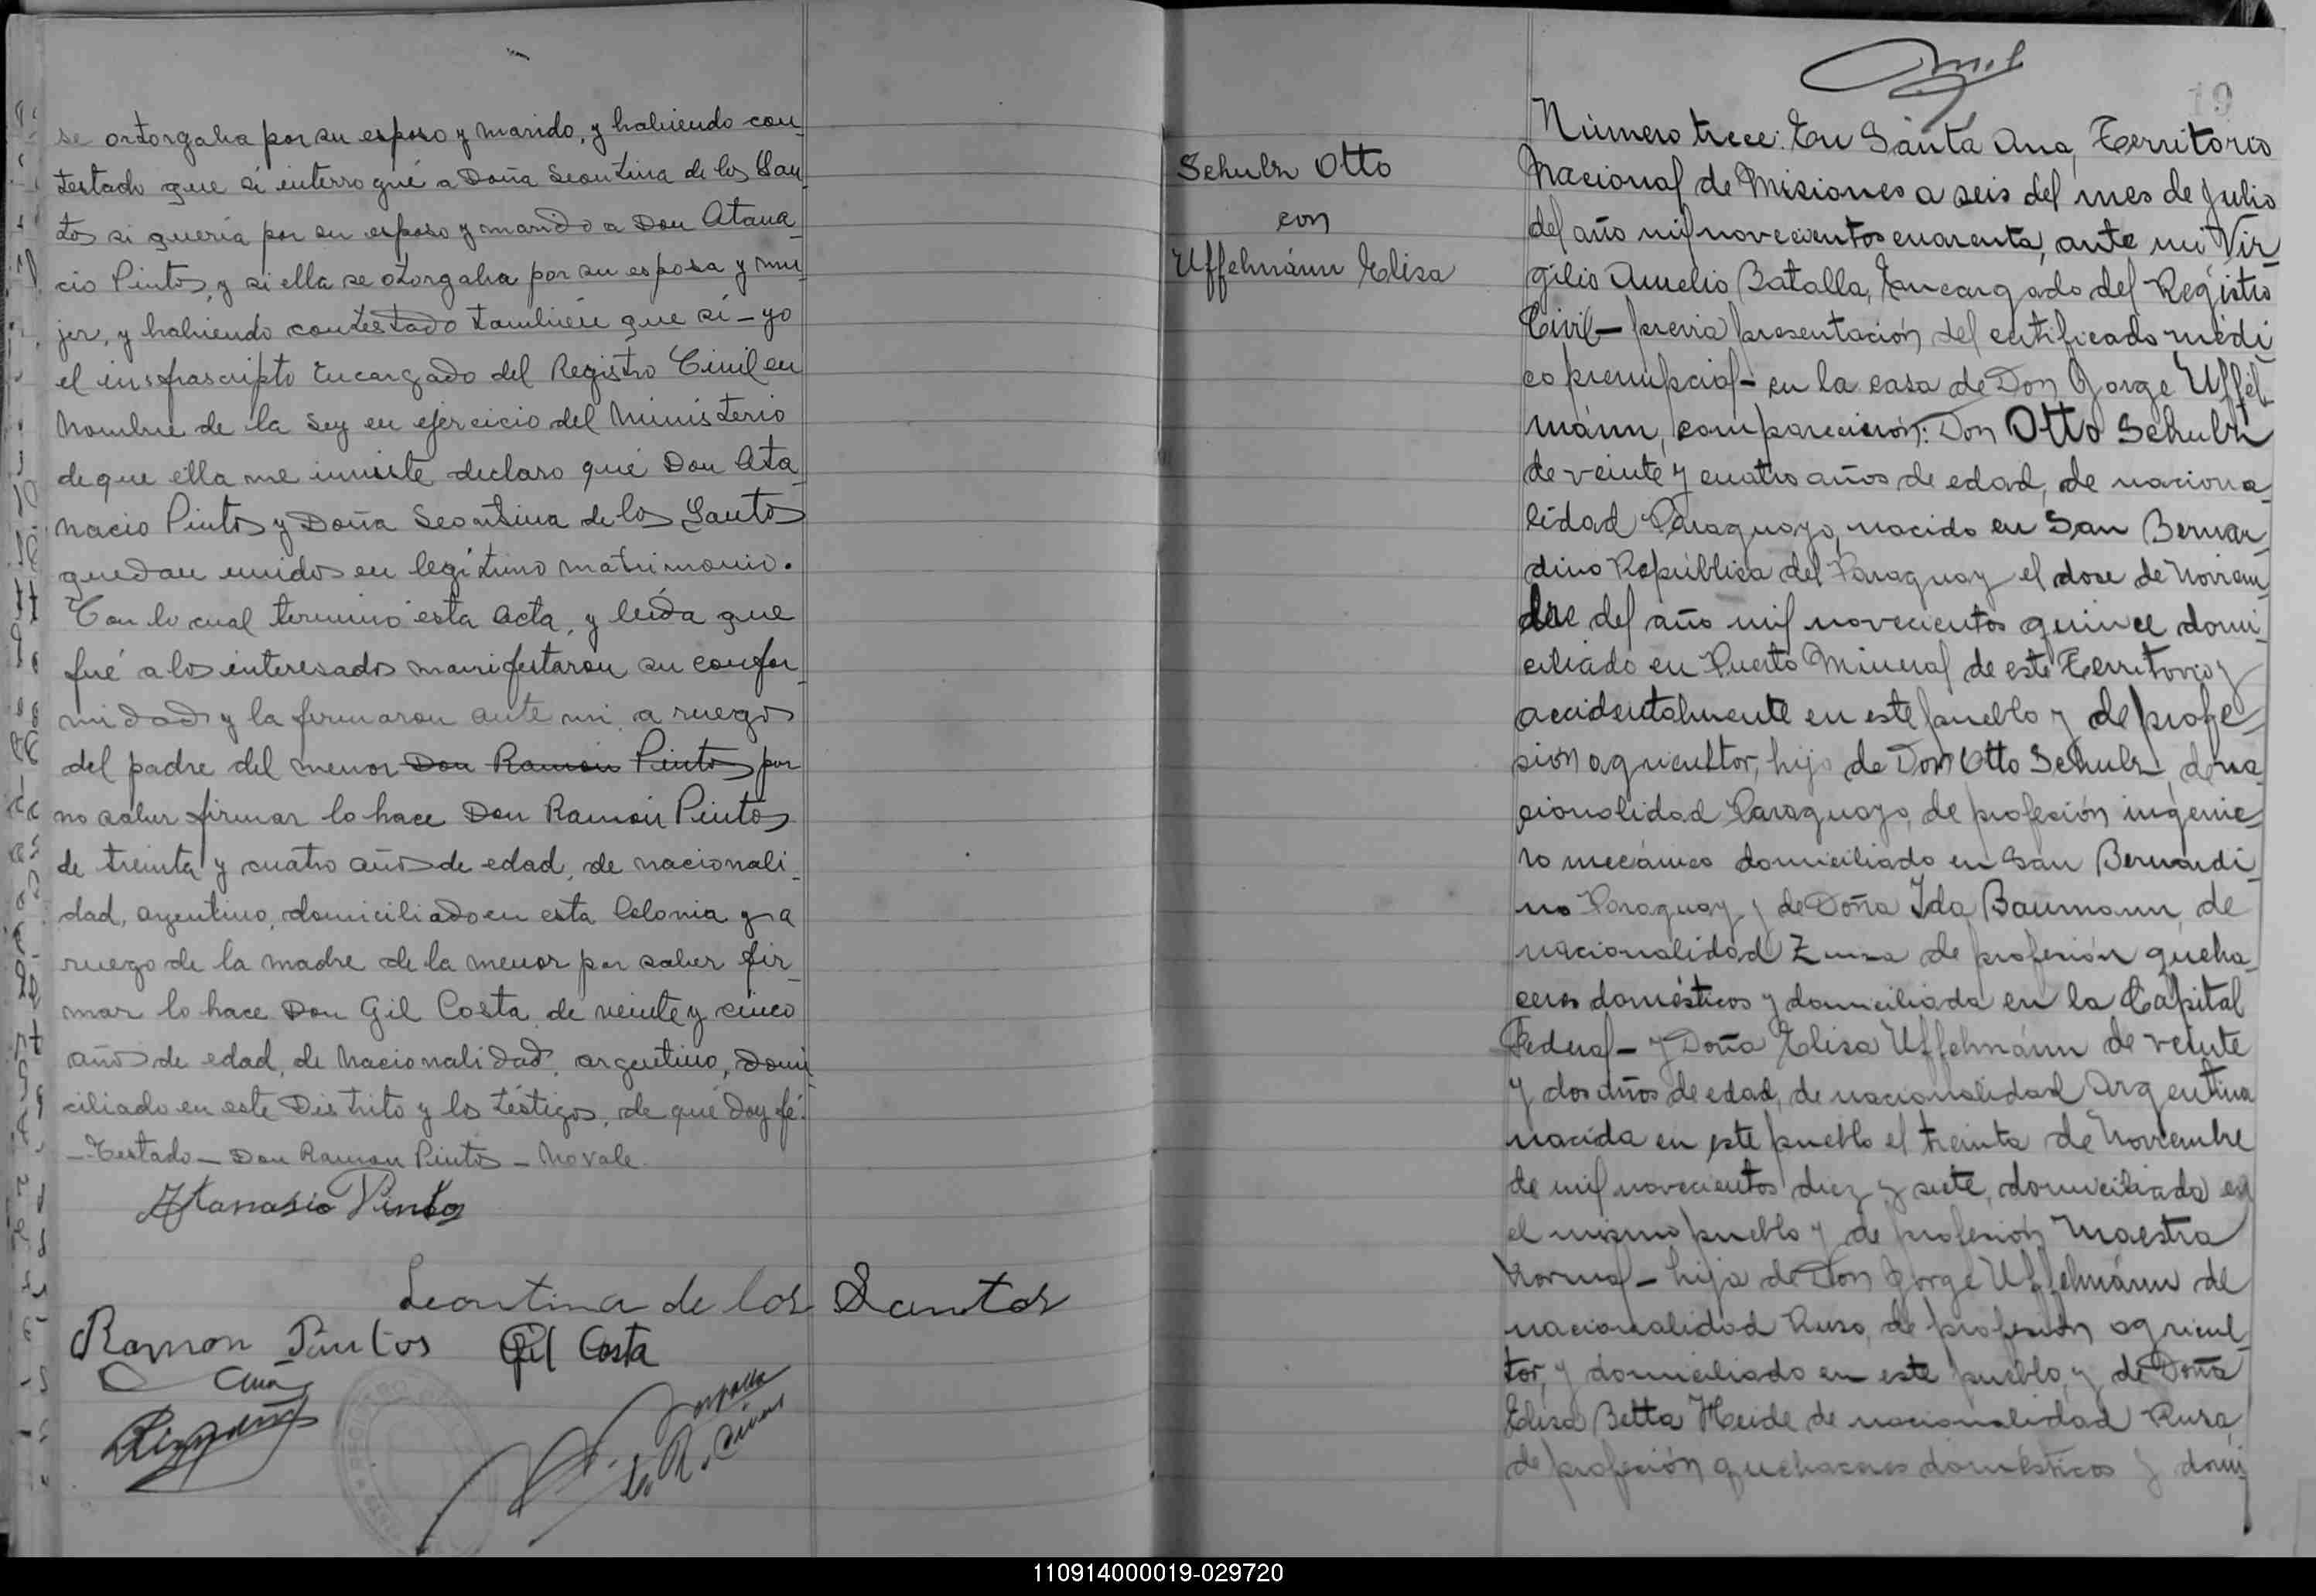 se ortorgaba por su esposo y marido, y habiendo con_
testado que si interrogué a Doña Leontina de los San_
tos si queria por su esposo y marido a Don Atana_
cio Pintos, y si ella se otorgaba por su esposa y mu_
jer, y habiendo contestado también que si - yo
el insfrascripto Encargado del Registro Civil en
Nombre de la Ley en ejercicio del Ministerio
de que ella me inviste declaro qué Don Ata_
nacio Pintos y Doña Leontina de los Santos
quedan unidos en legítimo matrimonio.
Con lo cual termino esta acta, y leída que
fué a los interesados manifestaron su confor_
midad y la firmaron ante mi a ruegos
del padre del menor Don Ramon Pintos por
no saber firmar lo hace Don Ramón Pintos
de treinta y cuatro años de edad, de nacionali_
dad, argentino, domiciliado en esta Colonia y a
ruego de la madre de la menor por saber fir_
mar lo hace Don Gil Costa de veinte y cinco
años de edad, de Nacionalidad, argentino, domi_
ciliado en este Distrito y los téstigos, de qué doy fé.
- Testado - Don Ramon Pintos - No vale.
Atanasio Pintos
Leontina de los Santos
Ramon Pintos Gil Costa
19
Schulz Otto
con
Uffelmánn Elisa
Número trece: En Santa Ana, Territorio
Nacional de Misiones a seis del mes de Julio
del año mil novecientos cuarenta, ante mi Vir_
gilio Aurelio Batalla, Encargado del Registro
Civil - previa presentación del certificado médi_
co prenupcial - en la casa de Don Jorge Uffel_
mánn, comparecieron: Don Otto Schulz
de veinte y cuatro años de edad, de naciona_
lidad Paraguayo, nacido en San Bernar_
dino República del Paraguay el dose de Noviem_
bre del año mil novecientos quince domi_
ciliado en Puerto Mineral de este Territorio y
accidentalmente en este pueblo y de profe_
sión agricultor, hijo de Don Otto Schulz, de na_
cionalidad Paraguayo, de profesión ingenie_
ro mecánico domiciliado en San Bernardi_
no Paraguay, y de Doña Ida Baumann, de
nacionalidad Zuiza de profesión queha_
ceres domésticos y domiciliada en la Capital
Federal - y Doña Elisa Uffelmánn de veinte
y dos años de edad, de nacionalidad Argentina
nacida en este pueblo el treinta de Noviembre
de mil novecientos diez y siete, domiciliada en
el mismo pueblo y de profesión Maestra
Normal - hija de Don Jorge Uffelmánn de
nacionalidad Ruso, de profesión agricul_
tor, y domiciliado en este pueblo, y de Doña
Elisa Betta Heide de nacionalidad Rusa,
de profesión quehaceres domésticos y domi_
110914000019-029720